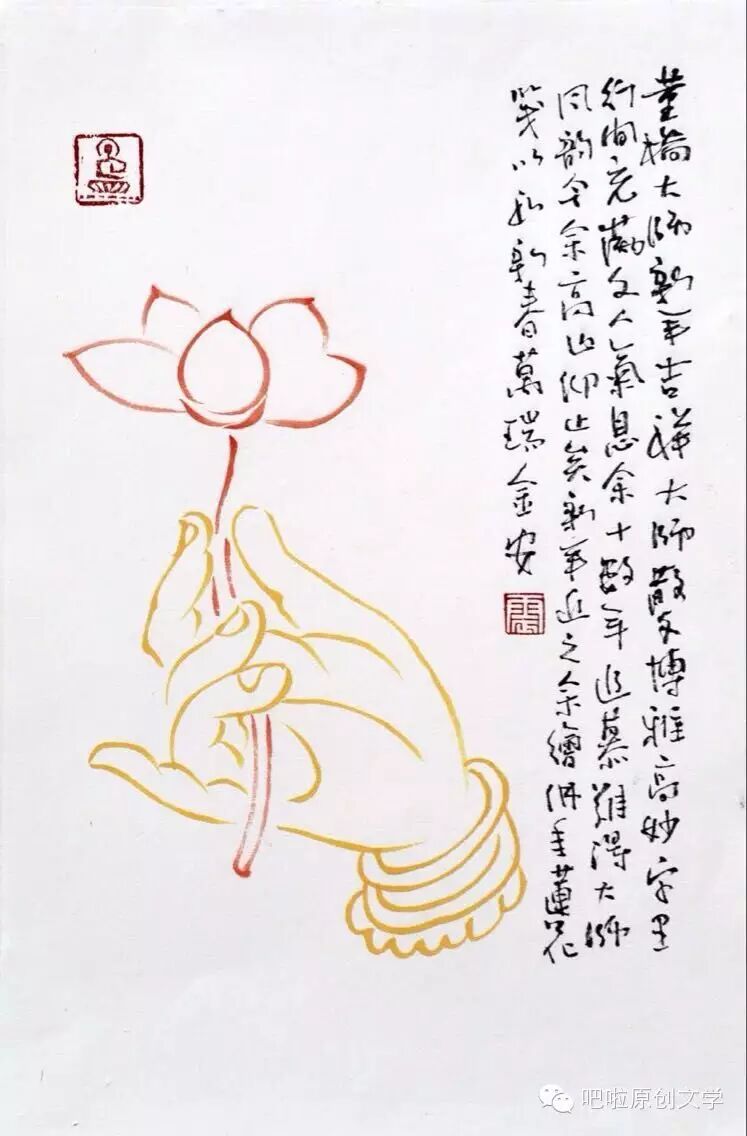 董橋大师新年吉祥大师散文博雅高妙字里
行間充滿文人氣息余十数年追慕難得大师
风韵令余高山仰止矣新年近之余繪佛手蓮花
箋以新春萬瑞金安
吧啦原创文学